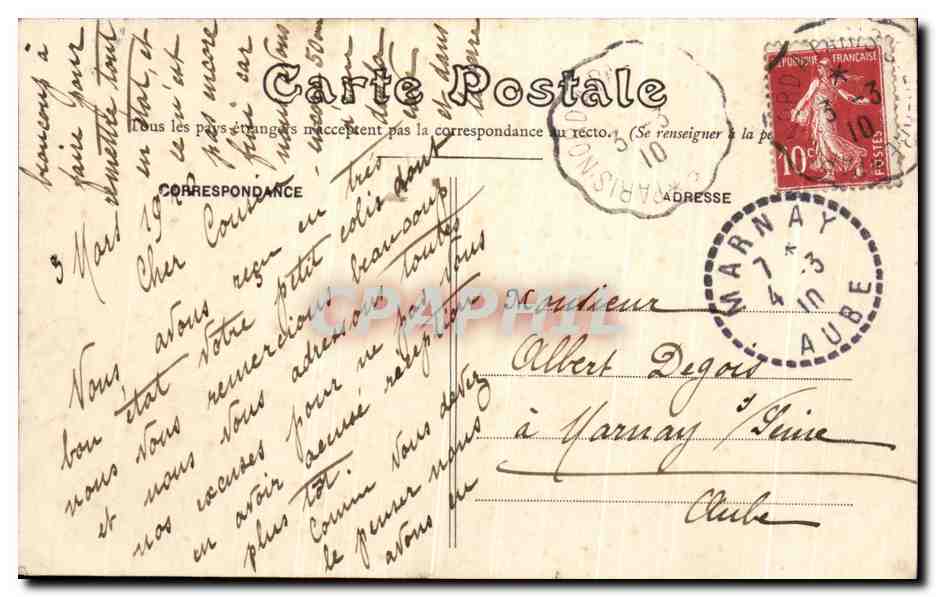 Carte Postale
Tous les pays étrangers n'acceptent pas la correspondance au recto. (Se renseigner à la
CORRESPONDANCE
ADRESSE
3 Mars 19
Cher Cousin
Nous avons reçu en très
bon état votre petit colis dont
nous vous remercions beaucoup
et nous vous adressons toutes
nos excuses pour ne pas vous
en avoir accusé réception
plus tôt
Comme vous devez
le penser nous
avons eu
beaucoup à
faire pour
remettre tout
en état, et
ce n'est
pas encore
fini car
nous avons
50
et dans
Monsieur
Albert Degois
à Marnay s/Seine
Aube
REPUBLIQUE FRANÇAISE
10c
POSTES
MARNAY
7 * 3
4 10
AUBE
3 - 3
10
PARIS
3 - 3
10
CPAPHIL